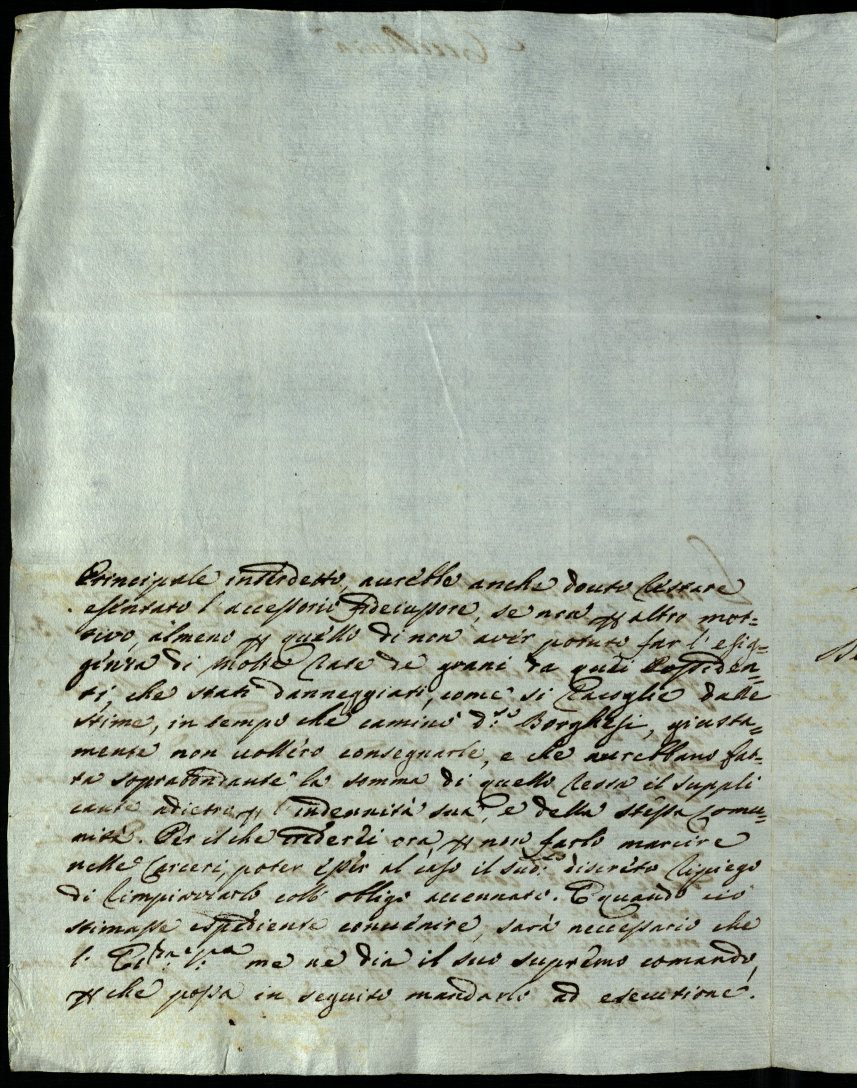 Principale interdetto, aurebbe anche douto restare
esentato l'accessorio fideiussore, se non p altro mot=
tivo, almeno p quello di non aver potuto far l'esig=
genza di molte rate de grani da quei Corriden=
ti, che stati danneggiati, come si raccoglie dalle
stime, in tempo che caminò d.to Borghesi, giusta=
mente non uollero consegnarle, e che aurebbano fat=
ta soprabondante la somma di quello resta il suppli
cante adietro p l'indennità sua, e della stessa Comu=
nità. Per il che crederei ora, p non farlo marcire
nelle Carceri, poter esser al caso il sud.to discreto ripiego
di rimpiazzarlo coll obligo accennato. E quando ciò
stimasse espediente conuenire, sarà neccessario che
l' me ne dia il suo supremo comando,
p che possa in seguito mandarlo ad esecutione.